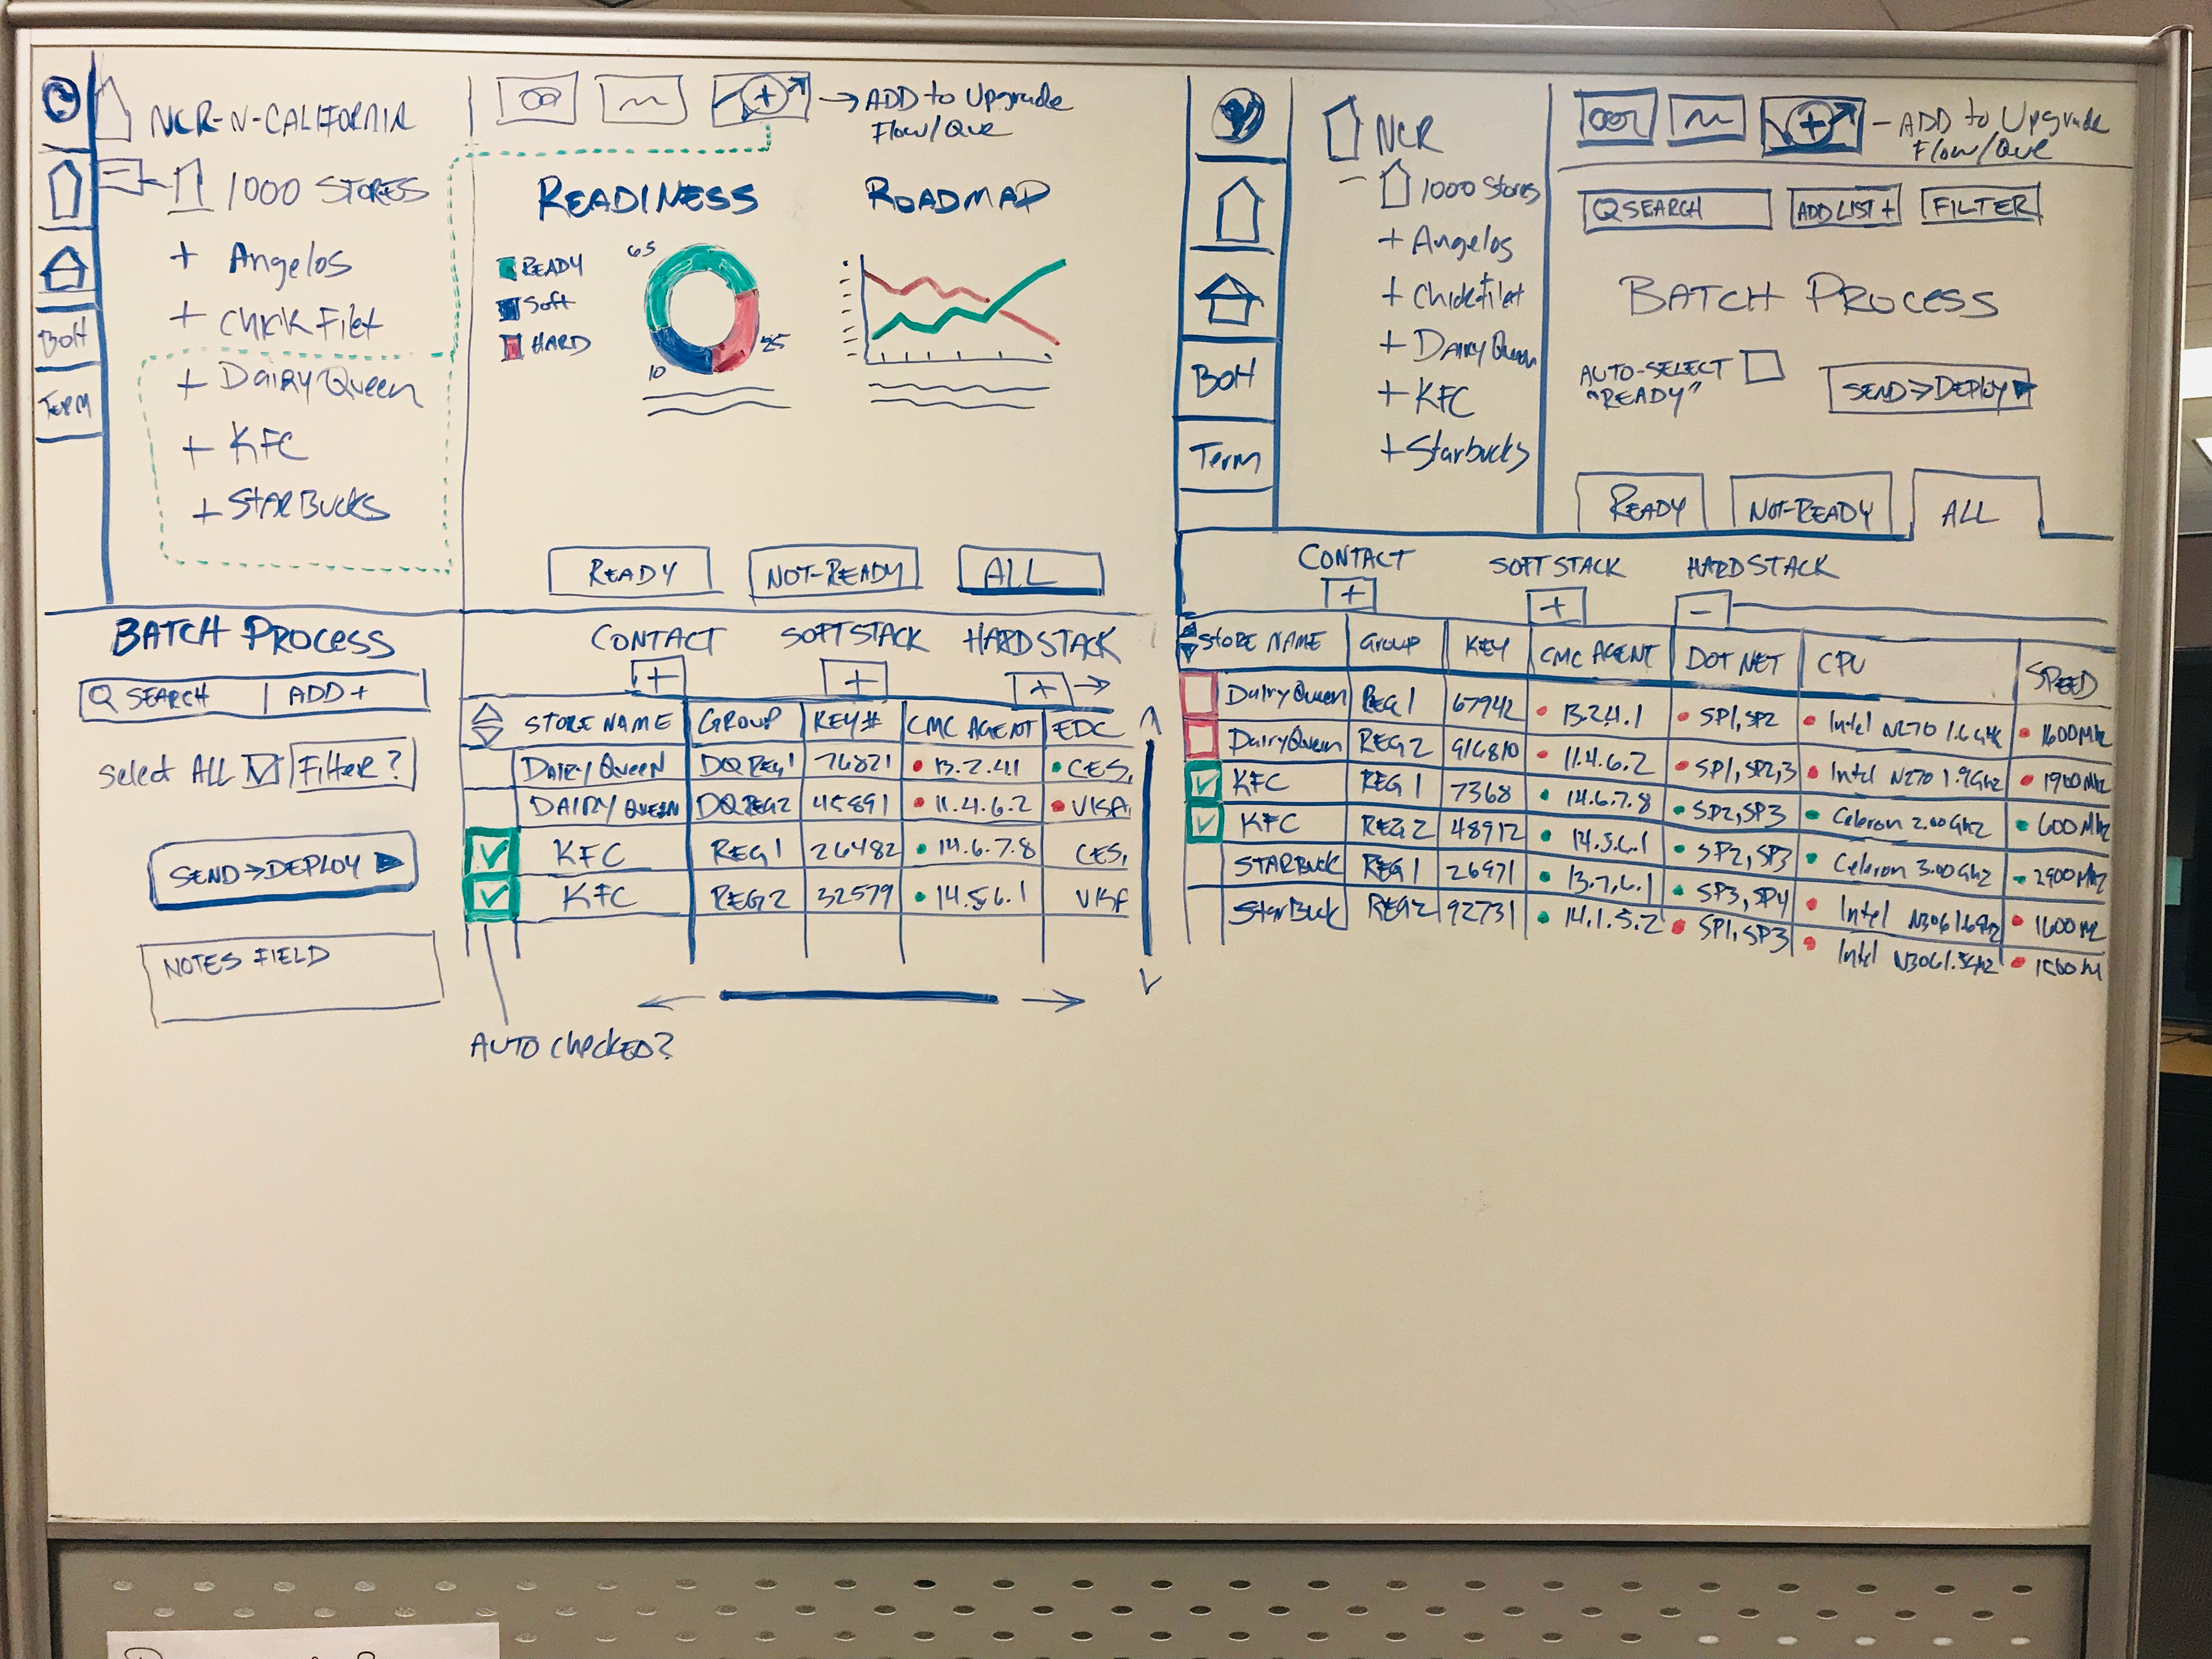 NCR-N-CALIFORNIA
1000 STORES
+ Angelos
+ Chick Filet
+ Dairy Queen
+ KFC
+ STARBUCKS
BOH
TERM
→ ADD to Upgrade
Flow/Que
READINESS
ROADMAP
READY
Soft
HARD
65
25
10
READY
NOT-READY
ALL
BATCH PROCESS
Q SEARCH | ADD +
Select ALL
Filter?
SEND > DEPLOY
NOTES FIELD
CONTACT SOFT STACK HARD STACK
+ + + →
STORE NAME GROUP KEY# CMC AGENT EDC
DAIRY QUEEN DQ REG1 76821 13.2.4.1 CES,
DAIRY QUEEN DQ REG2 45891 11.4.6.2 VISA,
KFC REG1 26482 14.6.7.8 CES,
KFC REG2 32579 14.5.6.1
AUTO CHECKED?
NCR
- 1000 Stores
+ Angelos
+ Chickfilet
+ Dairy Queen
+ KFC
+ Starbucks
BOH
Term
- ADD to Upgrade
Flow/Que
Q SEARCH
ADD LIST +
FILTER
BATCH PROCESS
AUTO-SELECT
"READY"
SEND > DEPLOY
READY
NOT-READY
ALL
CONTACT SOFT STACK HARD STACK
+ + -
STORE NAME GROUP KEY CMC AGENT DOT NET CPU SPEED
Dairy Queen REG 1 67942 13.2.4.1 SP1, SP2 Intel N270 1.6 GHz 1600 Mhz
Dairy Queen REG 2 916810 11.4.6.2 SP1, SP2,3 Intel N270 1.9Ghz 1900 Mhz
KFC REG 1 7368 14.6.7.8 SP2, SP3 Celeron 2.00 Ghz 600 Mhz
KFC REG 2 48912 14.5.6.1 SP2, SP3 Celeron 3.00 Ghz 2900 Mhz
STARBUCK REG 1 26971 13.7.6.1 SP3, SP4 Intel 1600 M
StarBuck REG 2 92731 14.1.5.2 SP1, SP3 Intel